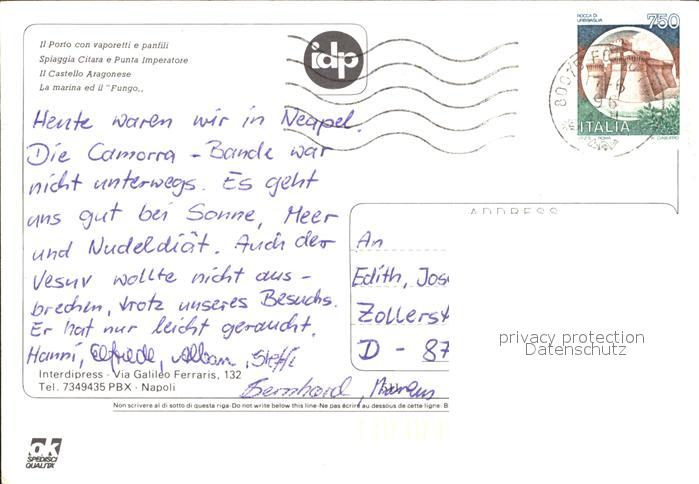 Il Porto con vaporetti e panfili
Spiaggia Citara e Punta Imperatore
Il Castello Aragonese
La marina ed il "Fungo,,
idp
ROCCA DI
URBISAGLIA
750
ITALIA
80075 FO
7-6
96
Heute waren wir in Neapel.
Die Camorra - Bande war
nicht unterwegs. Es geht
uns gut bei Sonne, Meer
und Nudeldiät. Auch der
Vesuv wollte nicht aus-
brechen, trotz unseres Besuchs.
Er hat nur leicht geraucht.
Hanni, Elfriede, Alban, Steffi
Bernhard, Markus
ADDRESS
An
Edith, Jos
Zollerst
D - 87
privacy protection
Datenschutz
Interdipress - Via Galileo Ferraris, 132
Tel. 7349435 PBX - Napoli
Non scrivere al di sotto di questa riga-Do not write below this line-Ne pas écrire au dessous de cette ligne- B
ok
SPEDISCI
QUALITÀ